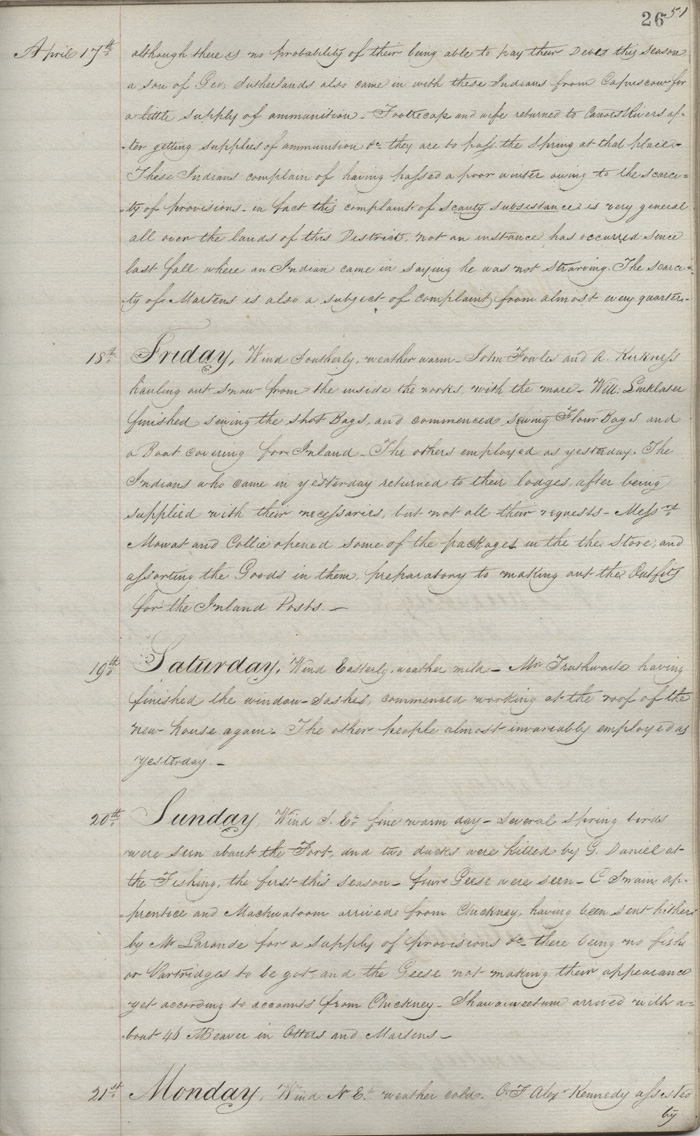 26 51
April 17th although there is no probability of their being able to pay their Debts this season
a son of Geo. Sutherlands also came in with these Indians from Capuscow for
a little supply of ammunition – Footrecap and wife returned to Rivers af-
-ter getting supplies of ammunition &c they are to pass the Spring at that place –
These Indians complain of having passed a poor winter owing to the scarci-
-ty of provisions – in fact this complaint of scanty subsistance is very general
all over the lands of this District, not an instance has occurred since
last fall where an Indian came in saying he was not starving. The scarci-
-ty of Martens is also a subject of complaint from almost every quarter –
18th Friday, Wind Southerly, weather warm – John Fowler and A. Kirkness
hauling out snow from the inside the works, with the mare – Will: Linklater
finished sewing the shot Bags, and commenced sewing Flour Bags and
a Boat covering for Inland – The others employed as yesterday. The
Indians who came in yesterday returned to their lodges after being
supplied with their necessaries, but not all their requests – Messrs
Mowat and Collie opened some of the packages in the the Store, and
assorting the Goods in them, preparatory to making out the Outfits
for the Inland Posts. –
19th Saturday, Wind Easterly, weather mild – Mr Truthwaite having
finished the window-Sashes, commenced working at the roof of the
new house again. The other people almost invariably employed as
yesterday –
20th Sunday, Wind S. Et fine warm day – Several Spring birds
were seen about the Fort, and two ducks were killed by G. Daniel at
the Fishing, the first this season – four Geese were seen – C Swain ap-
-prentice and Mackwatoom arrived from Cluckney, having been sent hither
by Mr Laronde for a supply of provisions &c – there being no fish
or Partridges to be got, and the Geese not making their appearance
yet according to accounts from Cluckney – Shawaineetum arrived with a-
-bout 40 MBeaver in Otters and Martens –
21st Monday, Wind N. Et weather cold. C. T Alexr Kennedy assisted
by